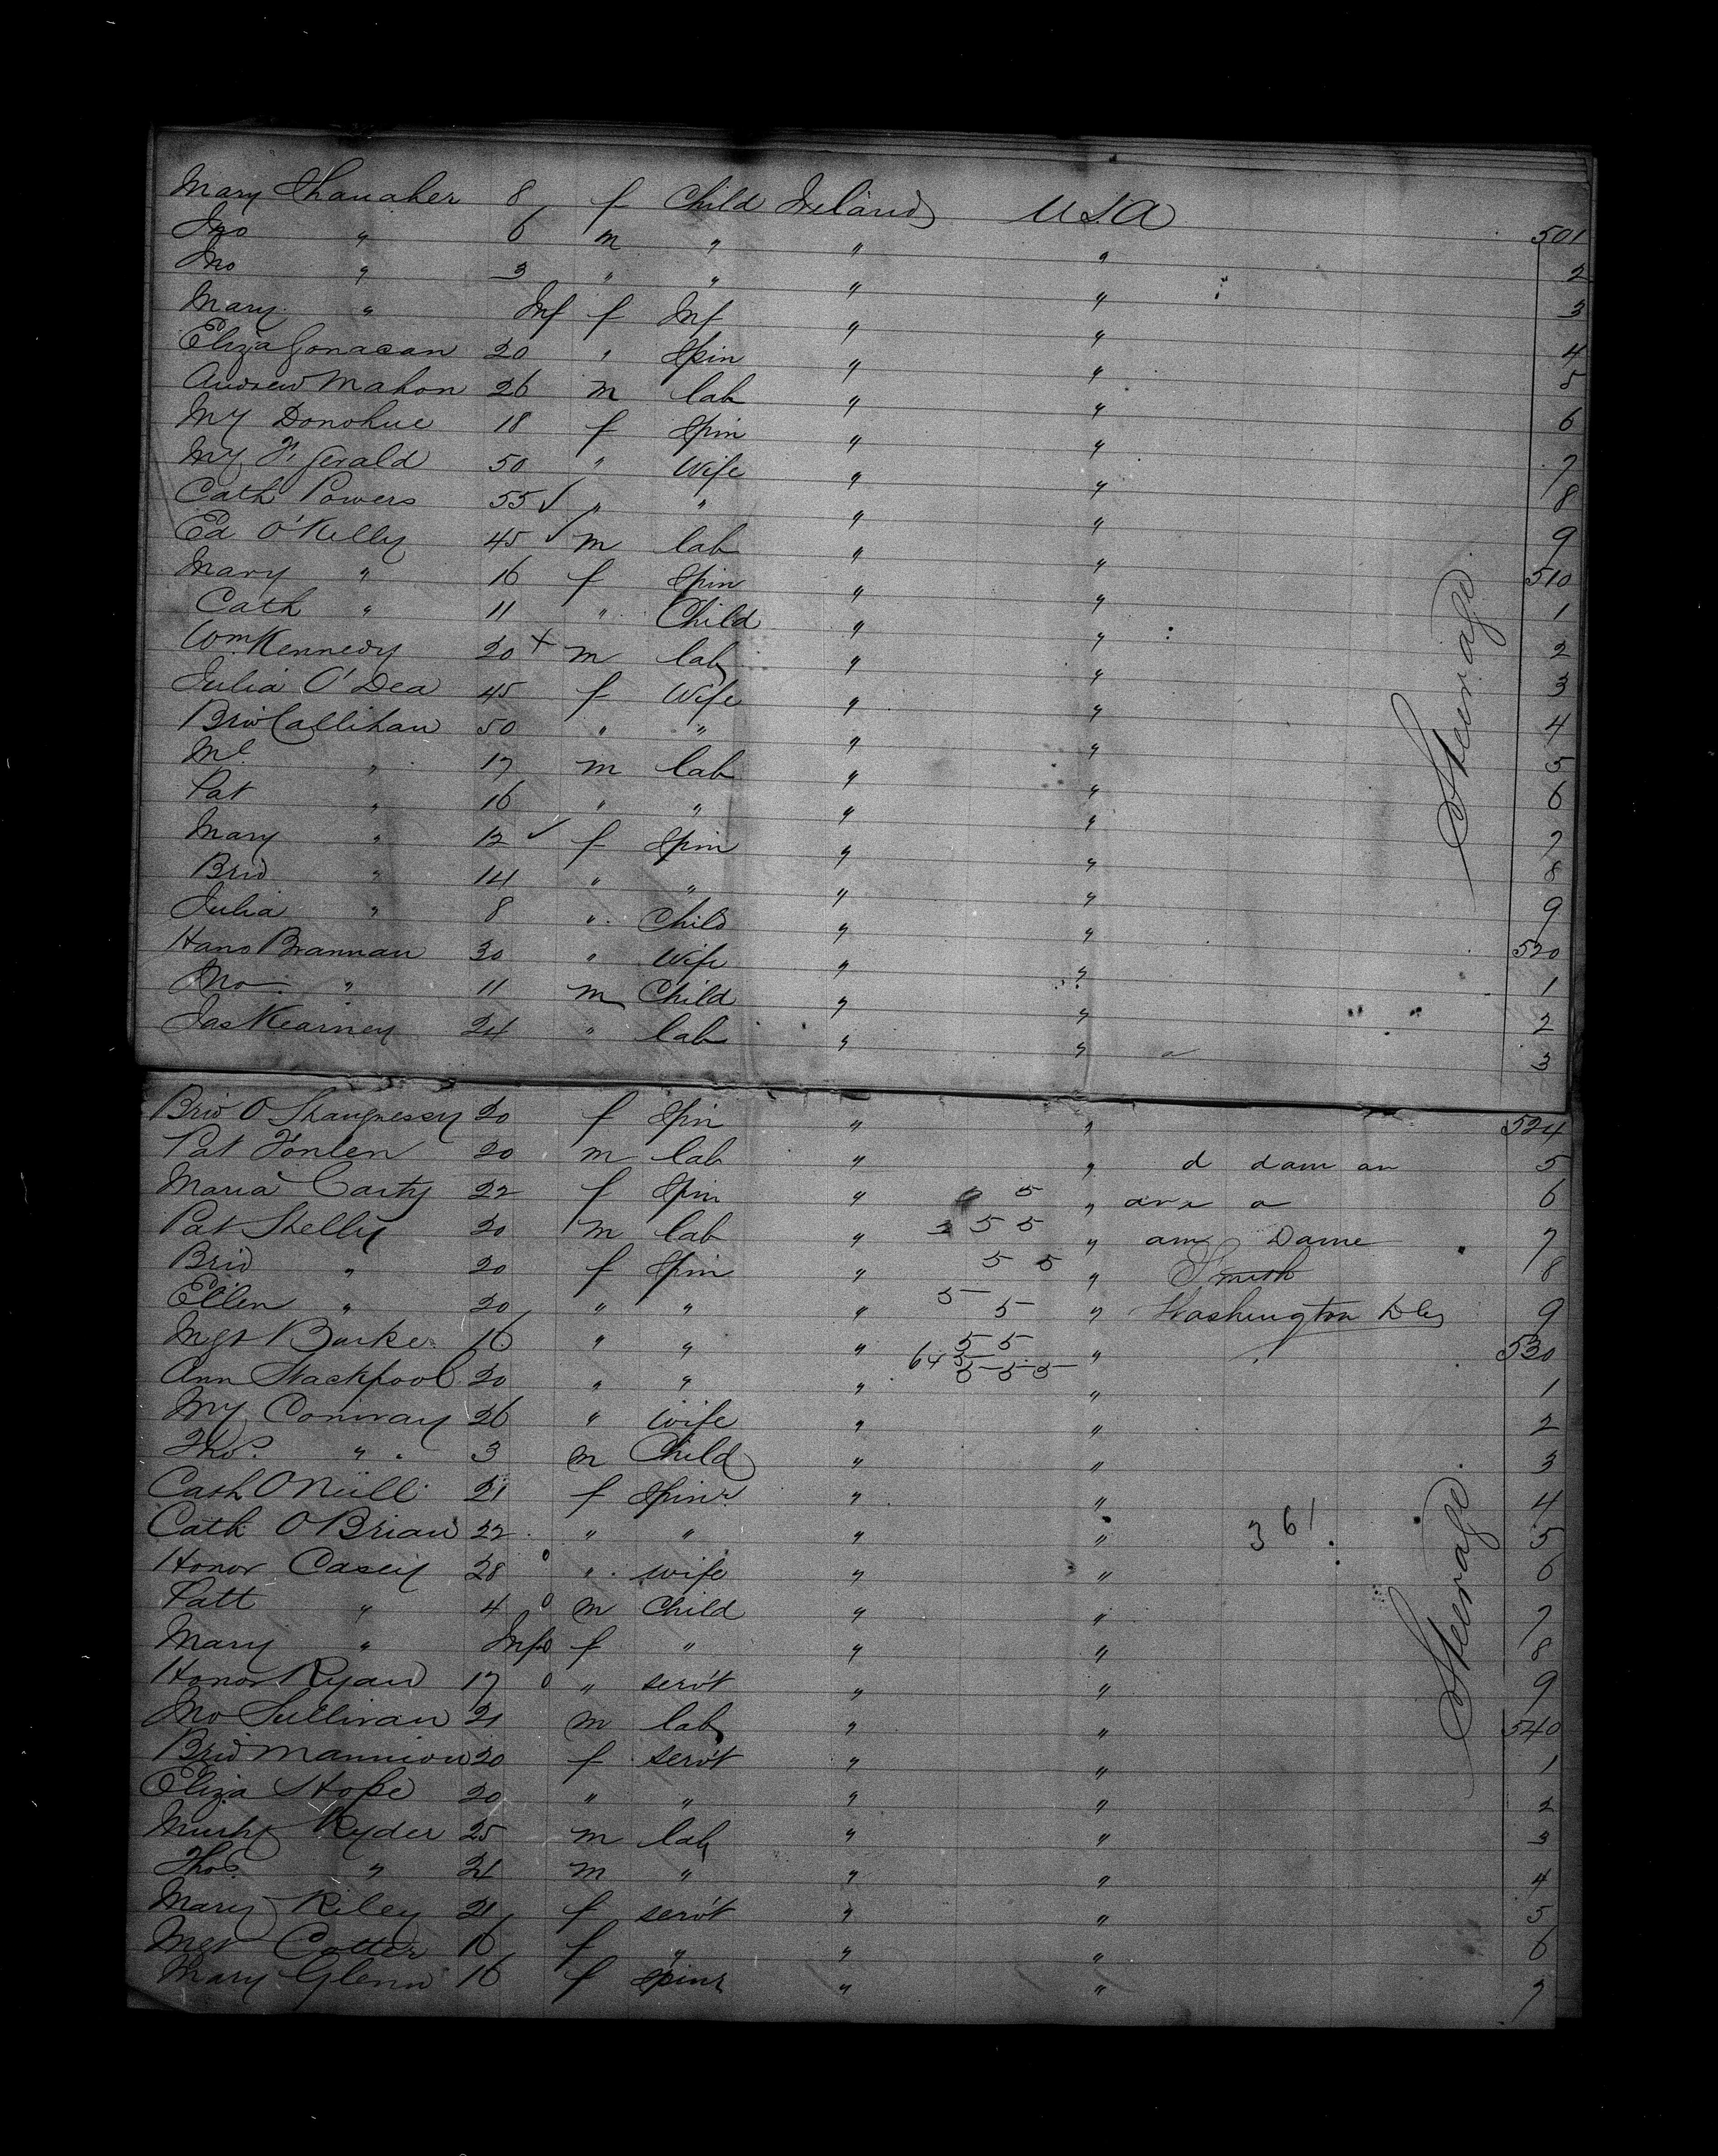 Mary Shanaher 8 f Child Ireland U.S.A 501
Jno " 6 m " " " 2
Jno " 3 " " " " 3
Mary " Inf f Inf " " 4
Eliza 20 " Spin " " 5
Andrew Mahon 26 m lab " " 6
My Donohue 18 f Spin " " 7
My F. Gerald 50 " Wife " " 8
Cath Powers 55 ✓ " " " " 9
Ed O'Kelly 45 ✓ m lab " " 510
Mary " 16 f Spin " " 1
Cath " 11 " Child " " 2
Wm Kennedy 20 + m lab " " 3
Julia O'Dea 45 f Wife " " 4
Brid Callihan 50 " " " " 5
Ml " 17 m lab " " 6
Pat " 16 " " " " 7
Mary " 12 ✓ f Spin " " 8
Brid " 14 " " " " 9
Julia " 8 " Child " " 520
Hano Brannan 30 " Wife " " 1
Jno " 11 m Child " " 2
Jas Kearney 24 " lab " " 3
Steerage
Brid O Shaugnessy 20 f Spin " " 524
Pat 20 m lab " " d dam an 5
Maria Carty 22 f Spin " 5 " a 6
Pat Shelly 20 m lab " 2 5 5 " am Dame 7
Brid " 20 f Spin " 5 5 " Smith 8
Ellen " 20 " " " 5 5 " Washington 9
Mgt Burke 16 " " " 5 5 " 530
Ann Stackpool 20 " " " 64 5 5 5 5 " 1
My Conway 26 " wife " " 2
Thos. " 3 m Child " " 3
Cath O Neill 21 f Spinr " " 4
Cath O Brian 22 " " " " 361 5
Honor Casey 28 o " wife " " 6
Patt " 4 o m Child " " 7
Mary " Inf o f " " " 8
Honor Ryan 17 o " serv't " " 9
Jno Sullivan 21 m lab " " 540
Brid Mannion 20 f serv't " " 1
Eliza Hope 20 " " " " 2
Murty Ryder 25 m lab " " 3
Thos " 21 m " " " 4
Mary Riley 21 f serv't " " 5
Mgt Cotter 16 f " " " 6
Mary Glenn 16 f spinr " " 7
Steerage